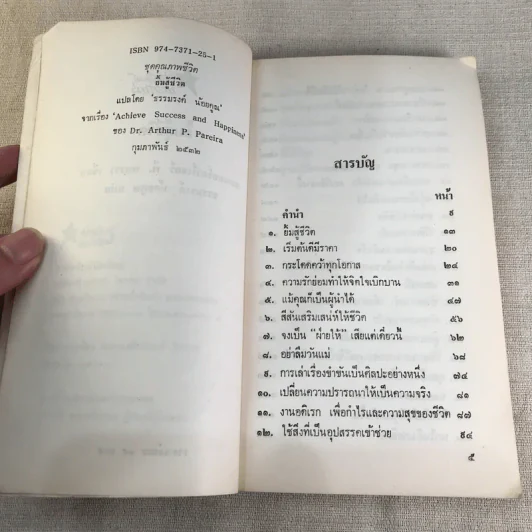 ISBN 974-7371-25-1
ชุดคุณภาพชีวิต
ยิ้มสู้ชีวิต
แปลโดย 'ธรรมรงค์ น้อยคูณ'
จากเรื่อง 'Achieve Success and Happiness'
ของ Dr. Arthur P. Pareira
กุมภาพันธ์ ๒๕๓๒
สารบัญ
หน้า
คำนำ ๙
๑. ยิ้มสู้ชีวิต ๑๓
๒. เริ่มต้นดีมีราคา ๒๐
๓. กระโดดคว้าทุกโอกาส ๒๔
๔. ความรักย่อมทำให้จิตใจเบิกบาน ๓๑
๕. แม้คุณก็เป็นผู้นำได้ ๔๗
๖. สีสันเสริมเสน่ห์ให้ชีวิต ๕๖
๗. จงเป็น "ฝ่ายให้" เสียแต่เดี๋ยวนี้ ๖๒
๘. อย่าลืมวันแม่ ๖๘
๙. การเล่าเรื่องขำขันเป็นศิลปะอย่างหนึ่ง ๗๔
๑๐. เปลี่ยนความปรารถนาให้เป็นความจริง ๘๑
๑๑. งานอดิเรก เพื่อกำไรและความสุขของชีวิต ๘๗
๑๒. ใช้สิ่งที่เป็นอุปสรรคเข้าช่วย ๙๔
๕